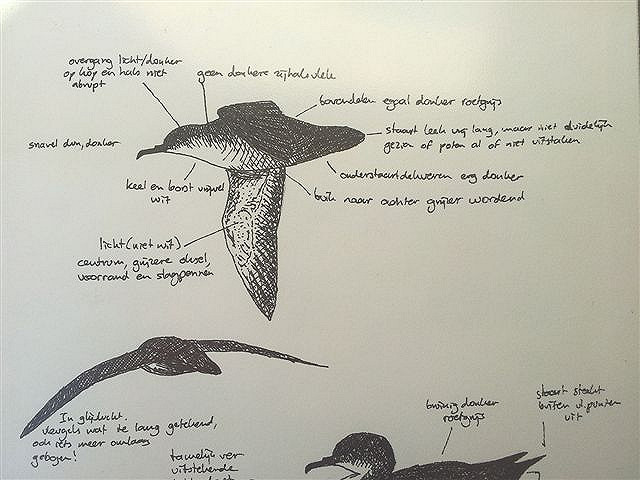 overgang licht/donker
op kop en hals niet
abrupt
geen donkere zijhalsvlek
bovendelen egaal donker roetgrijs
snavel dun, donker
staart leek vrij lang, maar niet duidelijk
gezien of poten al of niet uitstaken
onderstaartdekveren erg donker
keel en borst vrijwel
wit
buik naar achter grijzer wordend
licht (niet wit)
centrum, grijzere oksel,
voorrand en slagpennen
In glijvlucht.
vleugels wat te lang getekend,
ook iets meer omlaag
gebogen!
tamelijk ver
uitstekende
bruinig donker
roetgrijs
staart steekt
buiten vl.punten
uit